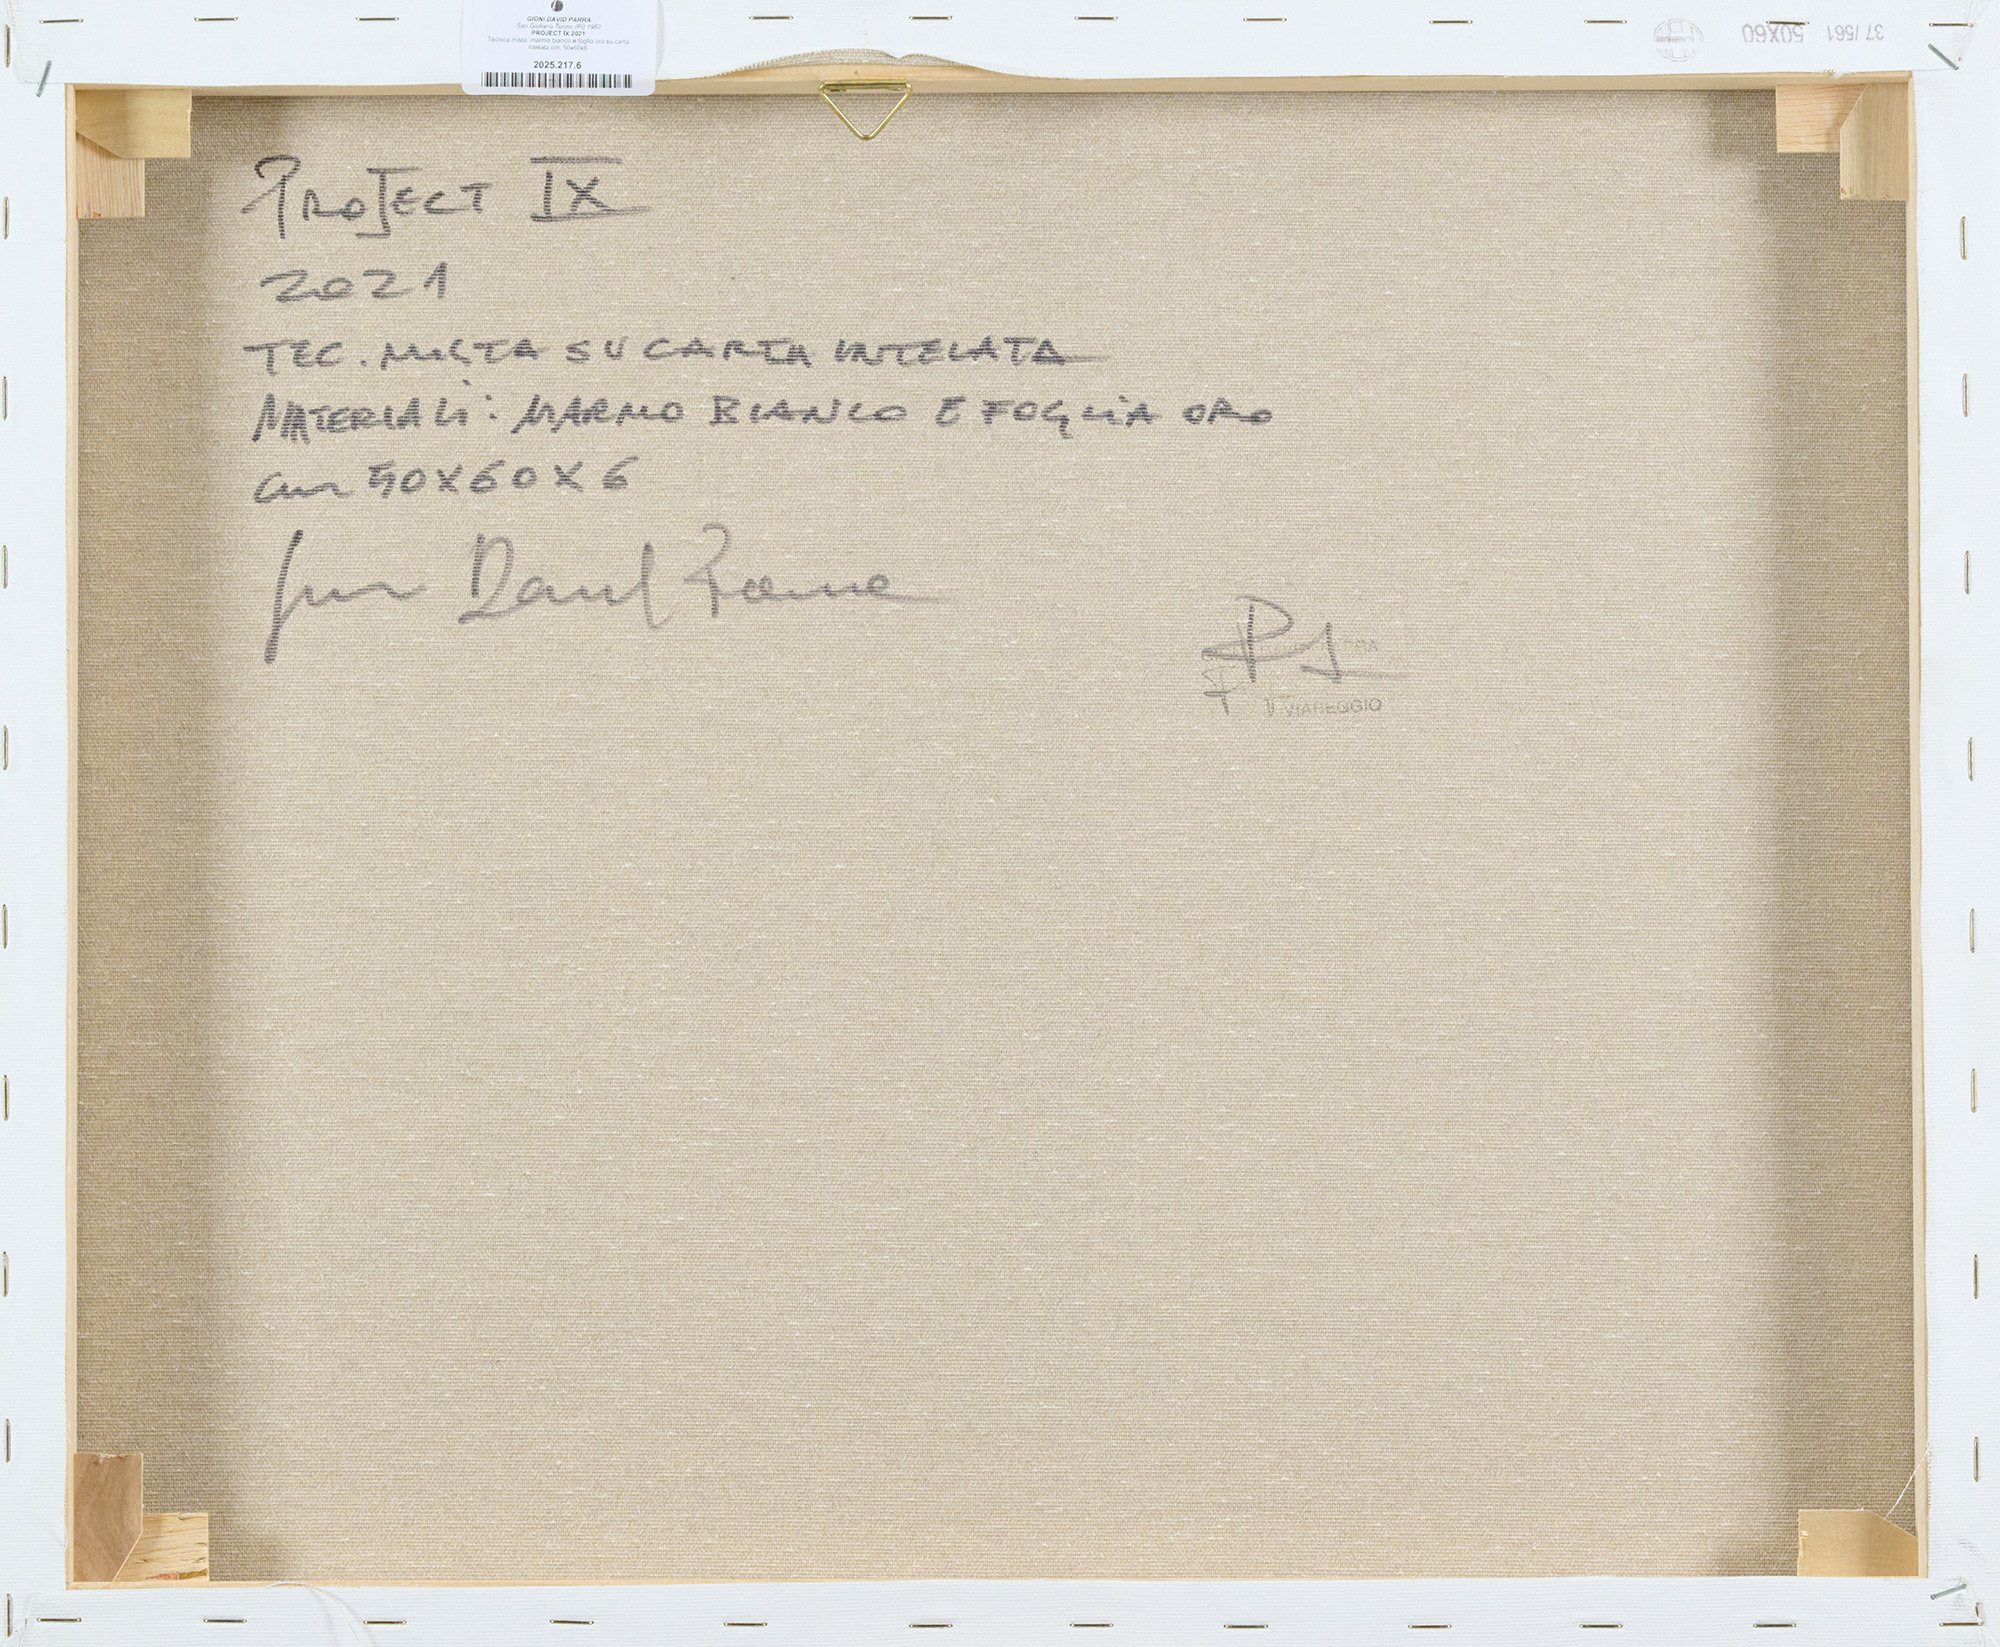 GIONI DAVID PARRA
San Giuliano Terme (Pi) 1962
PROJECT IX 2021
Tecnica mista, marmo bianco e foglia oro su carta
intelata cm. 50x60x6
2025.217.6
37 / 561 50X60
PROJECT IX
2021
TEC. MISTA SU CARTA INTELATA
MATERIALI: MARMO BIANCO E FOGLIA ORO
cm 50X60X6
Gioni David Parra
VIAREGGIO